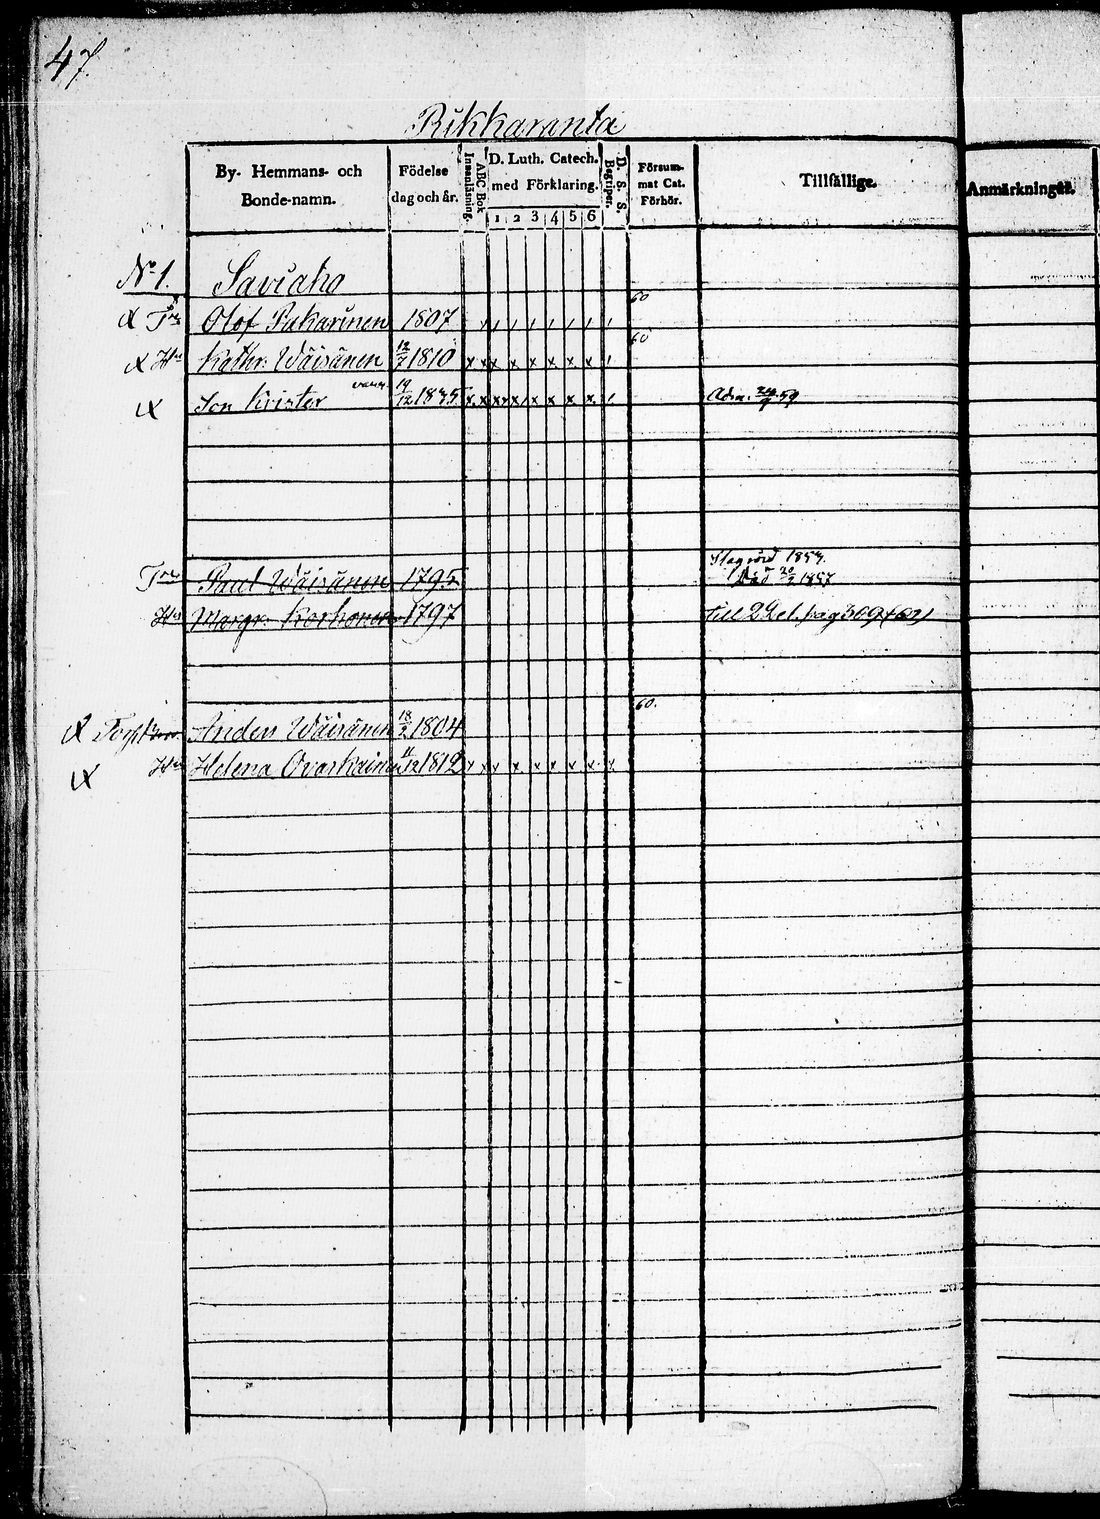 47.
Rikkaranta
By- Hemmans- och Bonde-namn.
Födelse dag och år.
ABC Bok Innanläsning.
D. Luth. Catech. med Förklaring.
1 2 3 4 5 6
D. S. S. Begriper.
Försummat Cat. Förhör.
Tillfällige.
Anmärkningar.
No 1. Saviaho
60
Olof Pakarinen 1807
60
Hu Kathr. Wäisänen 12/7 1810 x x x x x x x x
Son Krister 19/12 1835 x x x x x x x x Adm. 24/9 59
Paul Wäisänen 1795
20/2 1857
Hu Margr. Korhonen 1797 Till 2 Del. pag 369
60.
Torp Anders Wäisänen 18/9 1804
Hu Helena Ovaskainen 11/12 1812 x x x x x x x x x